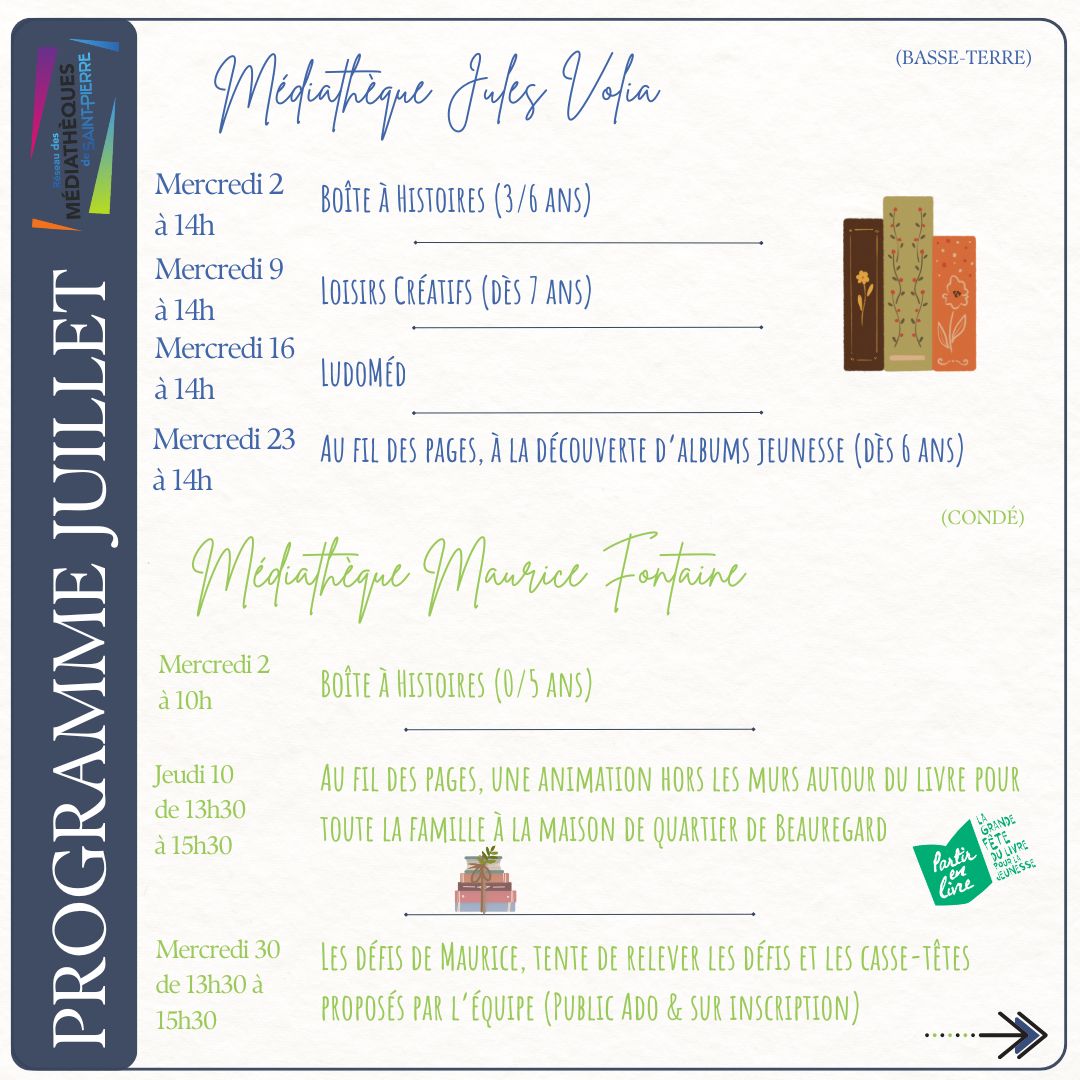 Réseau des
MÉDIATHÈQUES
de SAINT-PIERRE
PROGRAMME JUILLET
(BASSE-TERRE)
Médiathèque Jules Volia
Mercredi 2
à 14h
Boîte à Histoires (3/6 ans)
Mercredi 9
à 14h
Loisirs Créatifs (dès 7 ans)
Mercredi 16
à 14h
LudoMéd
Mercredi 23
à 14h
Au fil des pages, à la découverte d'albums jeunesse (dès 6 ans)
(CONDÉ)
Médiathèque Maurice Fontaine
Mercredi 2
à 10h
Boîte à Histoires (0/5 ans)
Jeudi 10
de 13h30
à 15h30
Au fil des pages, une animation hors les murs autour du livre pour
toute la famille à la maison de quartier de Beauregard
Partir
en
livre
LA
GRANDE
FÊTE
DU LIVRE
POUR LA
JEUNESSE
Mercredi 30
de 13h30 à
15h30
Les défis de Maurice, tente de relever les défis et les casse-têtes
proposés par l'équipe (Public Ado & sur inscription)